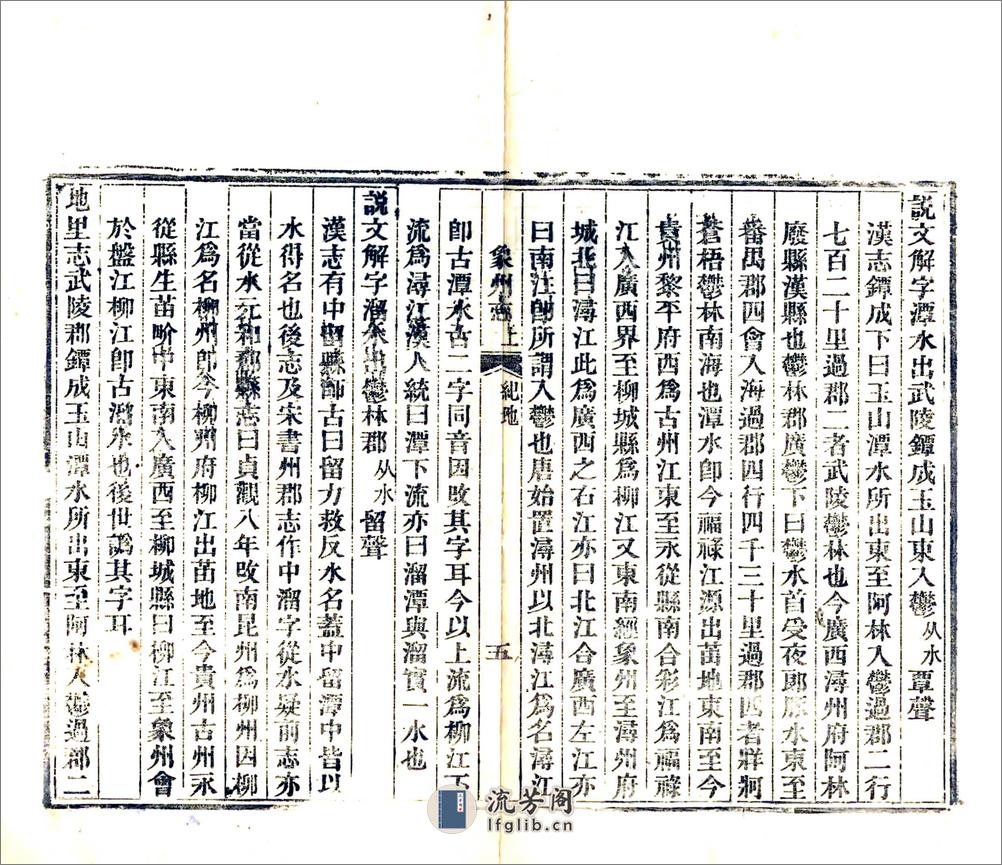 說文解字潭水出武陵鐔成玉山東入鬱从水覃聲
漢志鐔成下曰玉山潭水所出東至阿林入鬱過郡二行
七百二十里過郡二者武陵鬱林也今廣西潯州府阿林
廢縣漢縣也鬱林郡廣鬱下曰鬱水首受夜郎豚水東至
番禺郡四會入海過郡四行四千三十里過郡四者牂牁
蒼梧鬱林南海也潭水卽今福祿江源出苗地東南至今
貴州黎平府西爲古州江東至永從縣南合彩江爲福祿
江入廣西界至柳城縣爲柳江又東南經象州至潯州府
城北曰潯江此爲廣西之右江亦曰北江合廣西左江亦
曰南注卽所謂入鬱也唐始置潯州以北潯江爲名潯江
象州志上 紀地 五
卽古潭水古二字同音因攺其字耳今以上流爲柳江下
流爲潯江漢人統曰潭下流亦曰溜潭與溜實一水也
說文解字溜水出鬱林郡从水留聲
漢志有中留縣師古曰留力救反水名蓋中留潭中皆以
水得名也後志及宋書州郡志作中溜字從水疑前志亦
當從水元和郡縣志曰貞觀八年攺南昆州爲柳州因柳
江爲名柳州卽今柳州府柳江出苗地至今貴州古州永
從縣生苗畍中東南入廣西至柳城縣曰柳江至象州會
於盤江柳江卽古溜水也後世譌其字耳
地里志武陵郡鐔成玉山潭水所出東至阿林入鬱過郡二
流芳阁
lfglib.cn